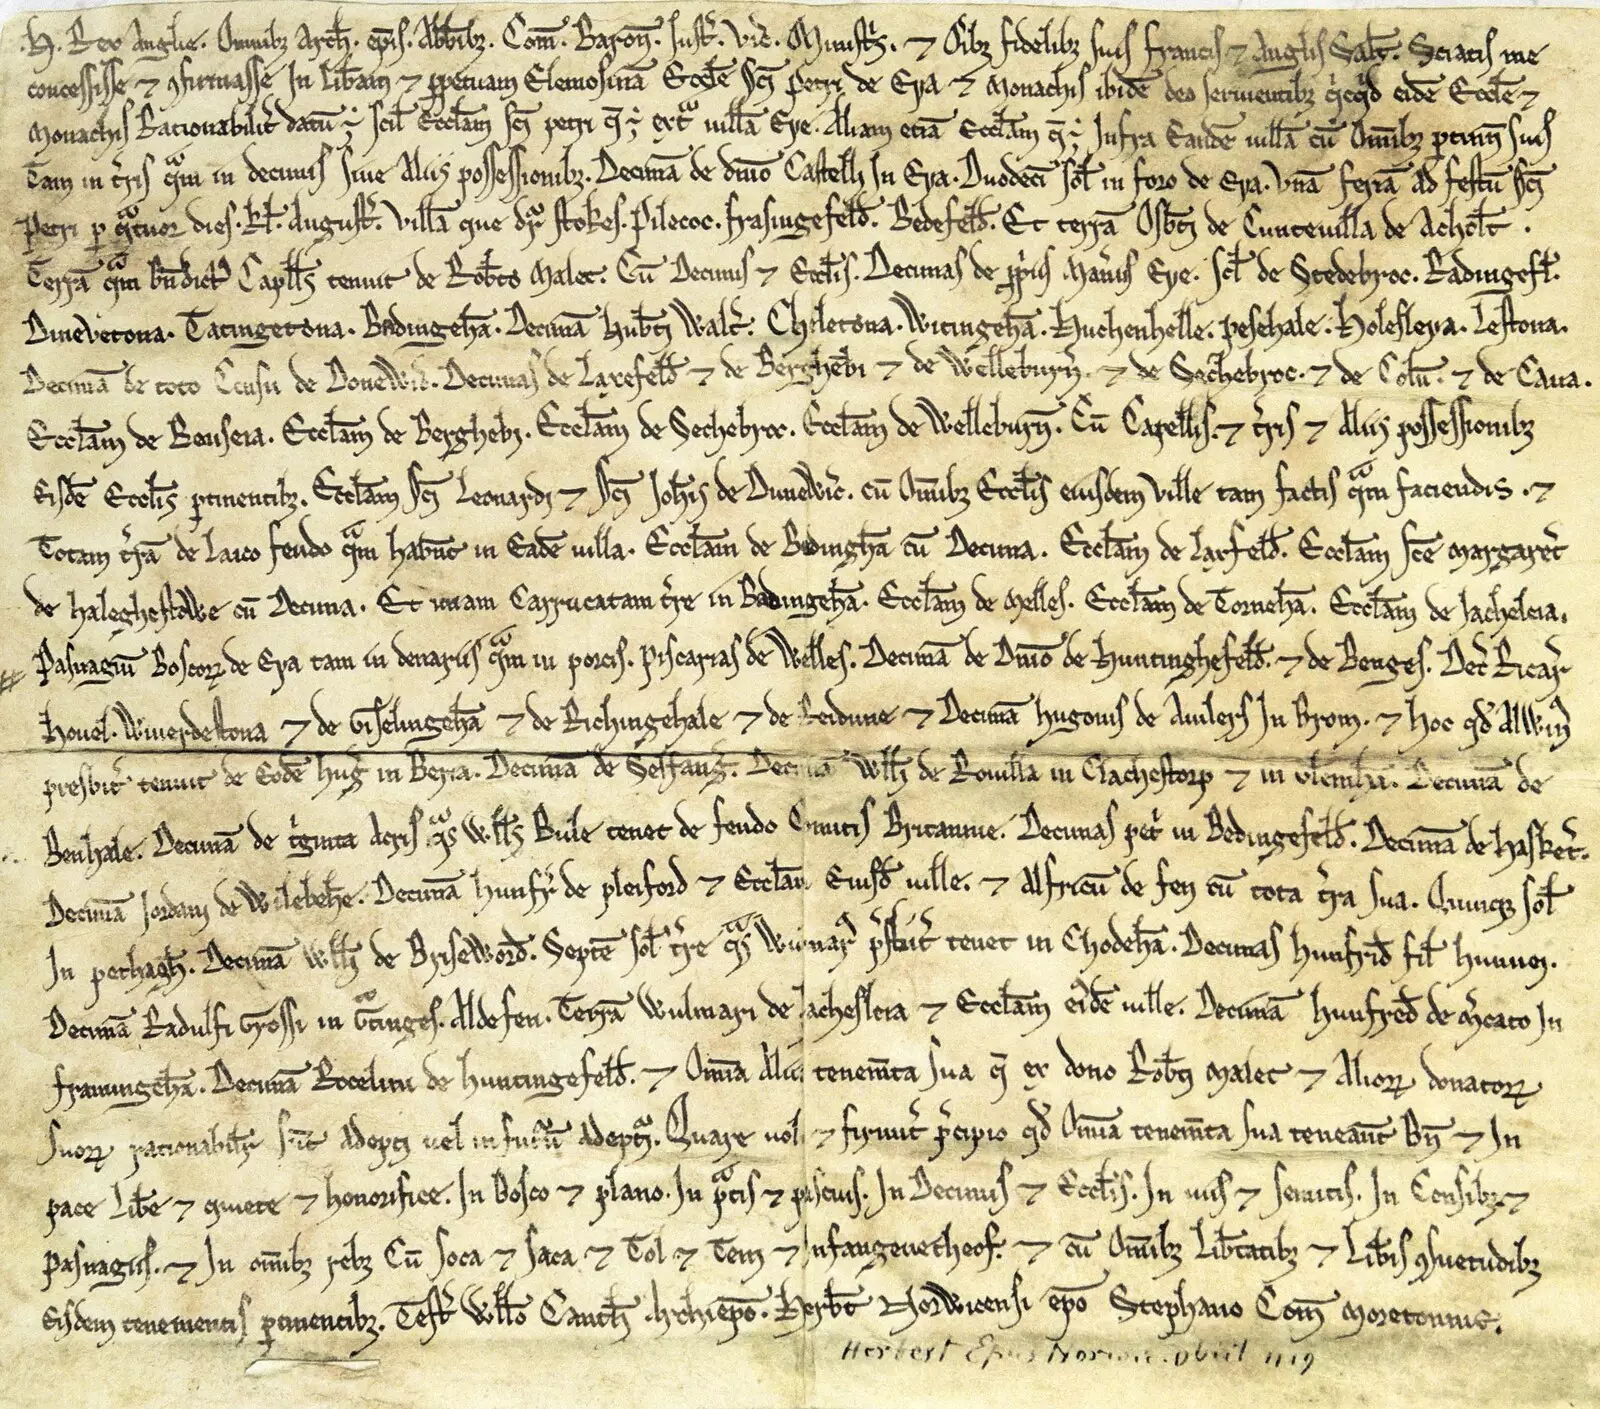 .H. Rex Anglie. Omnibȝ Arch̄. ep̄is. Abb̄ibȝ. Com̄. Baron̄. Just̄. Vic̄. Minist̄s. ⁊ Oībȝ fidelibȝ suis francis ⁊ Anglis Salt̄. Sciatis me
concessisse ⁊ ꝯfirmasse In Lib̄am ⁊ ꝑpetuam Elemosinā Ecc̄le Sc̄i Petri de Eya ⁊ Monachis ibidē deo seruientibȝ eidē Ecc̄le ⁊
Monachis Rationabilit̄ datū ÷ scil̄ Eccl̄am Sc̄i petri q̄ ÷ ext̄ uillā Eye. Aliam etiā Eccl̄am q̄ ÷ Infra Eandē uillā cū Om̄ibȝ ptinn̄ suis
Tam in t̄ris q̄m in decimis siue Aliis possessionibȝ. Decimā de dn̄io Castelli In Eya. Duodecī sol̄ in foro de Eya. Vnā feriā ad festū Sc̄i
Petri ꝑ q̄tuor dies. Kl̄. August̄. Villā que dr̄ stokes. Pilecoc. frasingefeld̄. Bedefeld̄. Et terrā Osb̄ti de Cunteuilla de Acholt̄.
Terrā q̄m Bn̄dict Capll̄s tenuit de Rob̄to Malet. Cū Decimis ⁊ Eccl̄is. Decimas de ꝓpriis Man̄iis Eye. Scl̄ de Stedebroc. Radingefl̄.
Dineuetona. Tatingetona. Badingehā. Decimā hub̄ti Walt̄. Chiletona. Witingehā. Huchenhelle. pesehale. Holesleya. Lestona.
Decimā de toto Censu de Donewic̄. Decimas de Laxefeld̄ ⁊ de Bergheb̄i ⁊ de Welleburn̄. ⁊ de Sechebroc. ⁊ de Colū. ⁊ de Caua.
Eccl̄am de Benseia. Eccl̄am de Berghebi. Eccl̄am de Sechebroc. Eccl̄am de Welleburn̄. Cū Capellis. ⁊ t̄ris ⁊ Aliis possessionibȝ
Eisdē Eccl̄is ꝑtinentibȝ. Eccl̄am Sc̄i Leonardi ⁊ Sc̄i Joh̄is de Dunewic̄. cū Om̄ibȝ Eccl̄is eiusdem Ville tam factis q̄m faciendis. ⁊
Totam t̄rā de Laico feudo q̄m habn̄t in Eadē uilla. Eccl̄am de Badinghā cū Decima. Eccl̄am de Laxfeld̄. Eccl̄am Sc̄e Margaret̄
de haleghestowe cū Decima. Et unam Carrucatam t̄re in Badingehā. Eccl̄am de Melles. Eccl̄am de Tornehā. Eccl̄am de Jacheleia.
Pasnagiū Boscoꝝ de Eya tam in denariis q̄m in porcis. Piscarias de Welles. Decimā de Dn̄io de Huntinghefeld̄. ⁊ de Benges. Dec̄ Ricar̄
Houel. Wiuerdestona ⁊ de Giselingehā ⁊ de Richingehale ⁊ de Reidune ⁊ Decimā hugonis de Auilers In Brom. ⁊ hoc qd̄ Alwin̄
presbit̄ tenuit de Eodē huḡ in Beria. Decimā de Selfanḡ. Decimā Will̄i de Rouilla in Clachestorp ⁊ in Glemhā. Decimā de
Benhale. Decimā de t̄ginta Acris q̄s Will̄s Bule tenet de feudo Comitis Britannie. Decimas pet̄ in Bedingefeld̄. Decimā de hasket̄.
Decimā Jordani de Wilebehe. Decimā hunfr̄ de pleiford ⁊ Eccl̄am Eiusd̄ uille. ⁊ Alfricū de fen cū tota t̄ra sua. Quinqȝ sol̄
In pethagh̄. Decimā Will̄i de Briseword̄. Septē sol̄ t̄re q̄s Wimar̄ p̄sbit̄ tenet in Chodehā. Decimas hunfrid̄ fil̄ hunuei.
Decimā Radulfi Grossi in G̊tinges. Aldefen. Terrā Wulmari de Jachesleia ⁊ Eccl̄am ei̓dē uille. Decimā hunfred̄ de M̄cato In
framingehā. Decimā Rocelini de huntingefeld̄. ⁊ Om̄ia Alia tenem̄ta sua q̄ ex dono Rob̄ti Malet ⁊ Alioꝝ donatoꝝ
Suoꝝ rationabilit̄ sūt Adepti uel in futur̄ Adepti. Quare uolo ⁊ firmit̄ p̄cipio qd̄ Om̄ia tenem̄ta sua teneānt Bn̄ ⁊ In
pace Lib̄e ⁊ quiete ⁊ honorifice. In Bosco ⁊ plano. In p̄tis ⁊ pascuis. In Decimis ⁊ Eccl̄is. In uiis ⁊ semitis. In Censibȝ ⁊
Pasnagiis. ⁊ In om̄ibȝ rebȝ Cū Soca ⁊ Saca ⁊ Tol ⁊ Tem ⁊ Infangenetheof. ⁊ cū Om̄ibȝ Lib̄tatibȝ ⁊ Lib̄is ꝯsuetudibȝ
Eisdem tenementis ꝑtinentibȝ. Test̄ Will̄o Cant̄ Archiepō. Herb̄t Norwicensi epō Stephano Com̄ Moretonnie.
Herbert Epus Norwic. obiit 1119